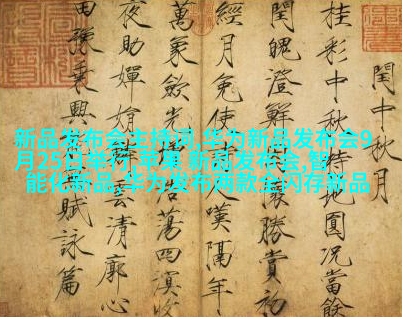 新品发布会主持词,华为新品发布会9
月25日举行,苹果 新品发布会,智
能化新品,华为发布两款全闪存新品
閏中秋月
桂彩中秋特地圓況當餘
閏魄澄鮮勝賞初
經月免使人嘆隔年
萬象斂光蕩四溟收
夜助嬋娟雲清廓心
田豫乘興賦詠篇